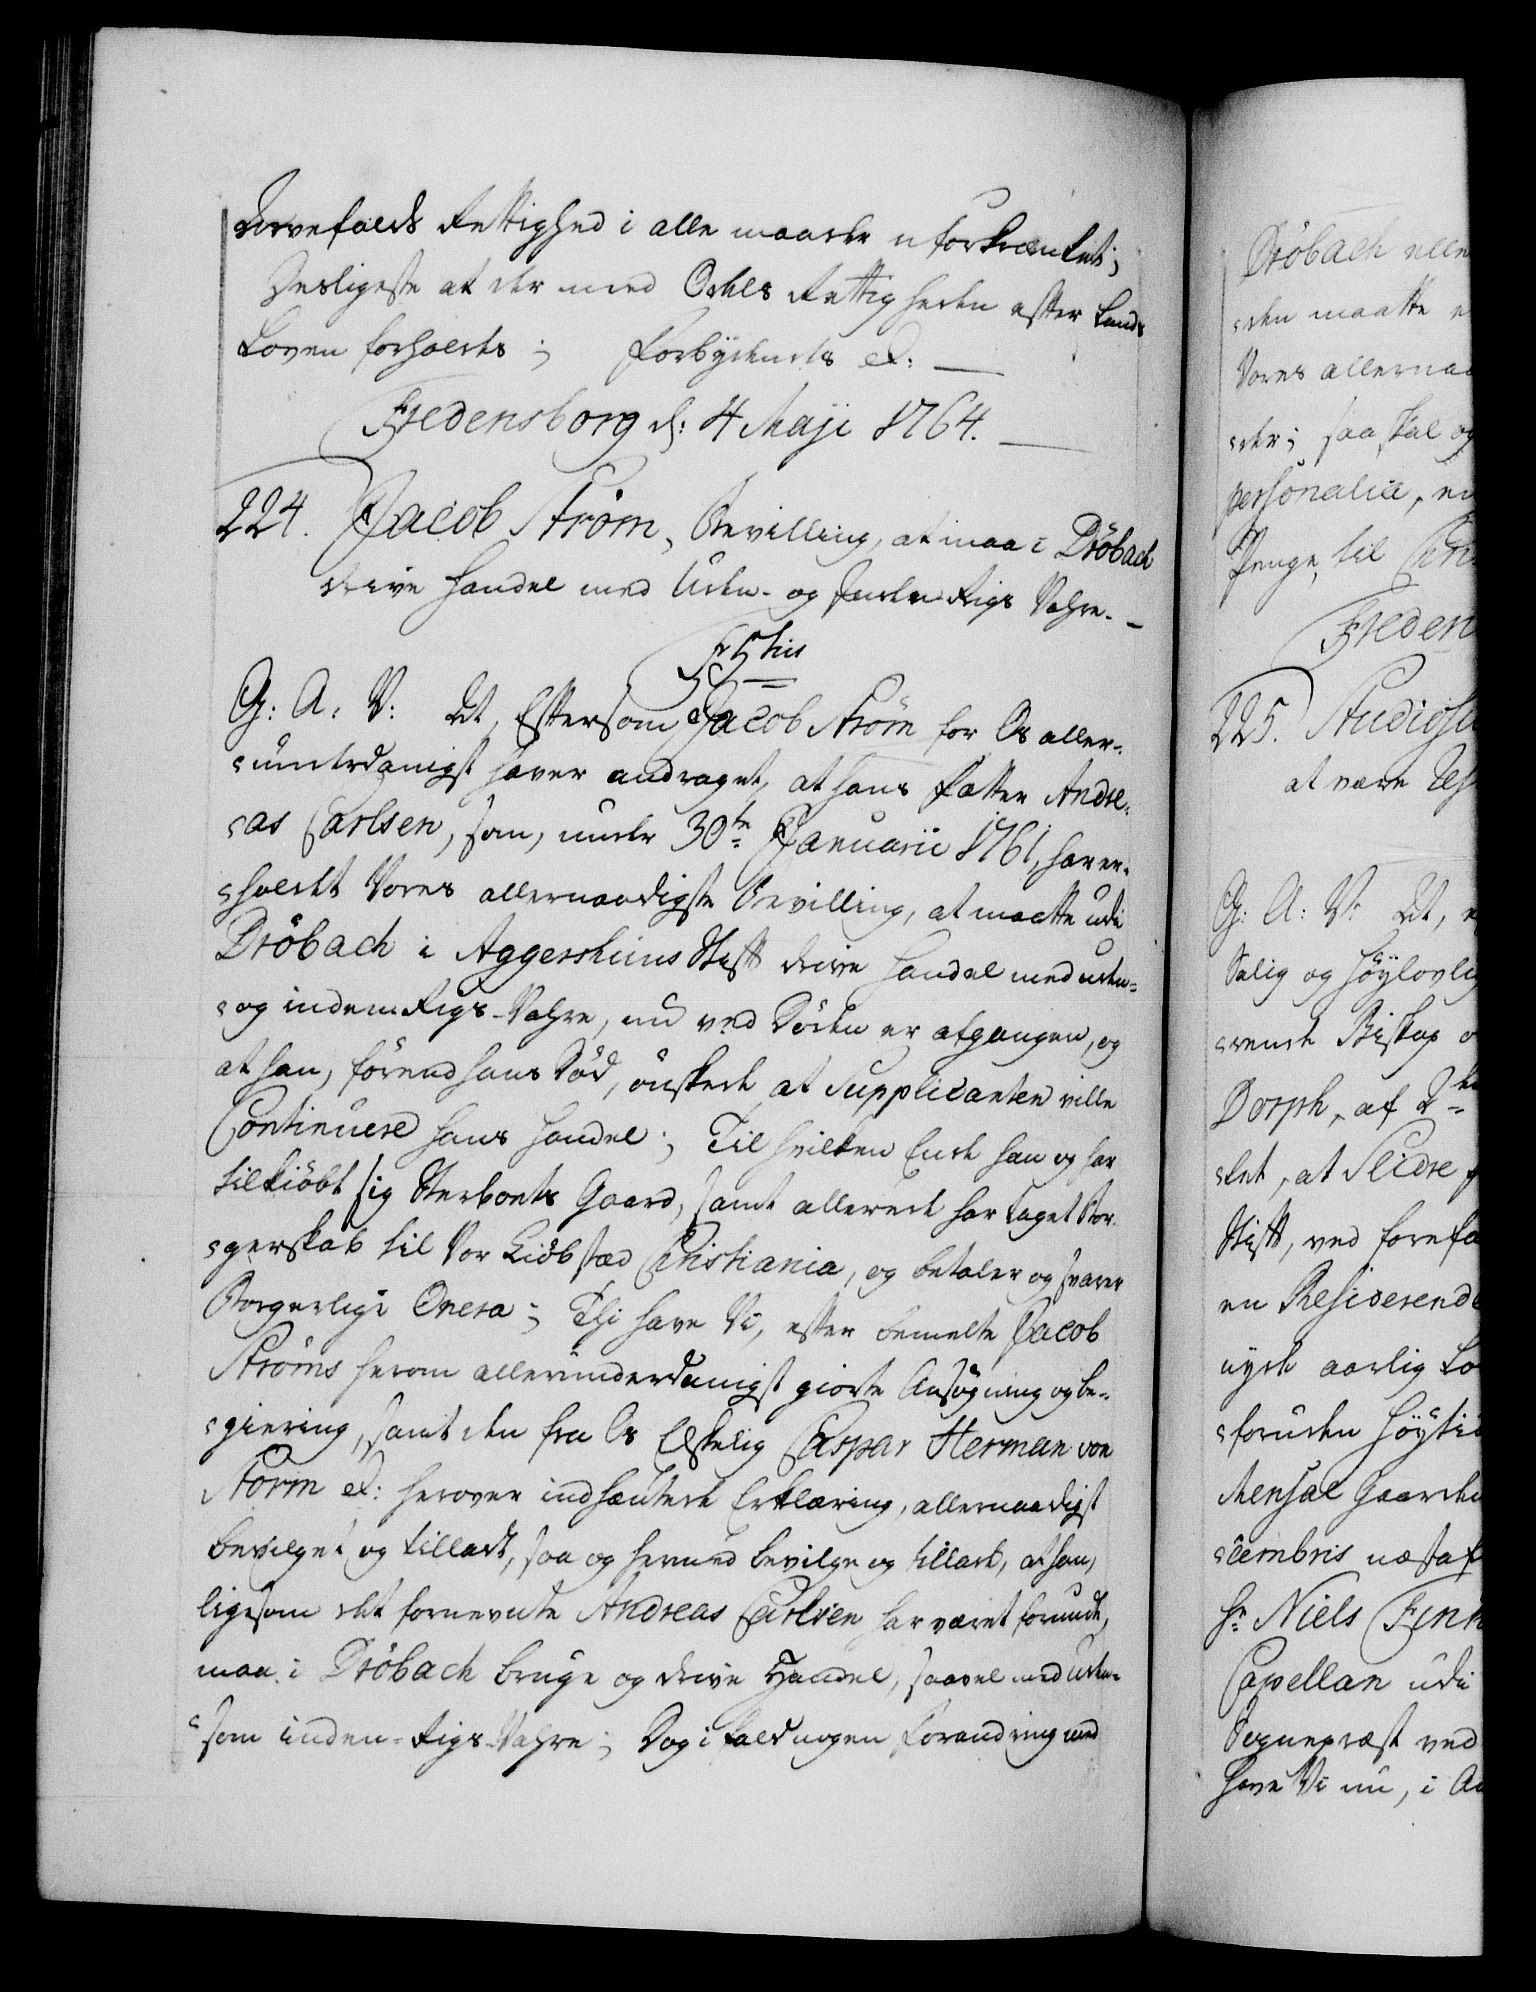 Arvefalds Rettighed i alle maader uforkrænket;
Desligeste at der med Odels Rettigheden efter Lands
Loven forholdes; Forbydendes &:
Fredensborg d: 4 Maji 1764.
224. Jacob Strøm, Bevilling, at maa i Dröbach
drive Handel med Uden- og Inden Rigs Vahre.
G: A: V: At, Eftersom Jacob Ström for Os aller-
underdanigst haver andraget, at hans Fætter Andre-
as Carlsen, som, under 30te Januarii 1761, har er-
holdet Vores allernaadigste Bevilling, at maatte udi
Dröbach i Aggershuus Stift drive Handel med uden-
og inden Rigs-Vahre, nu ved Döden er afgangen, og
at han, förend hans Död, önskede at Supplicanten ville
Continuere hans Handel; Til hvilken Ende han og har
tilkiöbt sig Sterboets Gaard, samt allerede har taget Bor-
gerskab til Vor Kiöbstæd Christiania, og betaler og svarer
Borgerlige Onera; Thi have Vi, efter bemelte Jacob
Ströms herom allerunderdanigst giorte Ansögning og be-
giering, samt den fra Os Elskelig Caspar Herman von
Storm &: herover indhæntede Erklæring, allernaadigst
bevilget og tilladt, saa og hermed bevilge og tillade, at han,
ligesom det fornevnte Andreas Carlsen har været forundt,
maa i Dröbach bruge og drive Handel, saavel med Uden-
som inden-Rigs-Vahre; Dog ifald nogen Forandring med
Dröbach elle
den maatte
Vores allernaa
der; saa skal og
personalia, en
Penge, til
Freden
225. Studioso
at være
G: A: V: At,
Salig og Höylovlig
rende Biskop
Dorph, af 2
let, at Slidre
Stift, ved forefa
en Residerende
nyde aarlig
foruden Höytid
Mensal Gaarden
cembris næstaf
Hr Niels
Capellan udi
Sognepræst ved
have Vi nu, i